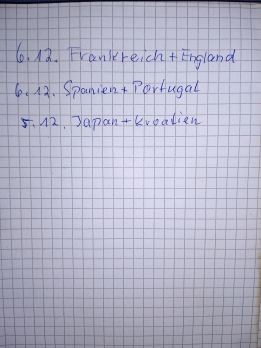 6.12. Frankreich + England
6.12. Spanien + Portugal
5.12. Japan + Kroatien